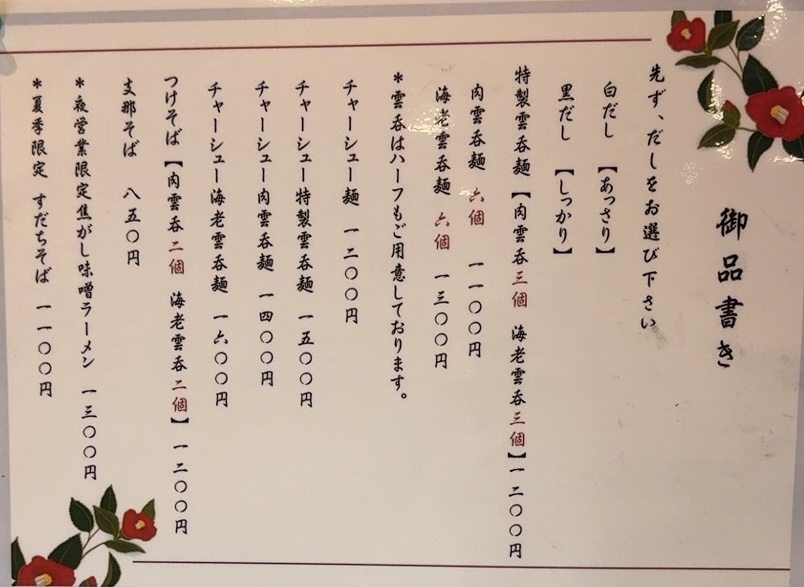 御品書き
先ず、だしをお選び下さい
白だし 【あっさり】
黒だし 【しっかり】
特製雲呑麺【肉雲呑三個 海老雲呑三個】一二〇〇円
肉雲呑麺 六個 一一〇〇円
海老雲呑麺 六個 一三〇〇円
*雲呑はハーフもご用意しております。
チャーシュー麺 一二〇〇円
チャーシュー特製雲呑麺 一五〇〇円
チャーシュー肉雲呑麺 一四〇〇円
チャーシュー海老雲呑麺 一六〇〇円
つけそば【肉雲呑二個 海老雲呑二個】一二〇〇円
支那そば 八五〇円
*夜営業限定焦がし味噌ラーメン 一三〇〇円
*夏季限定 すだちそば 一一〇〇円